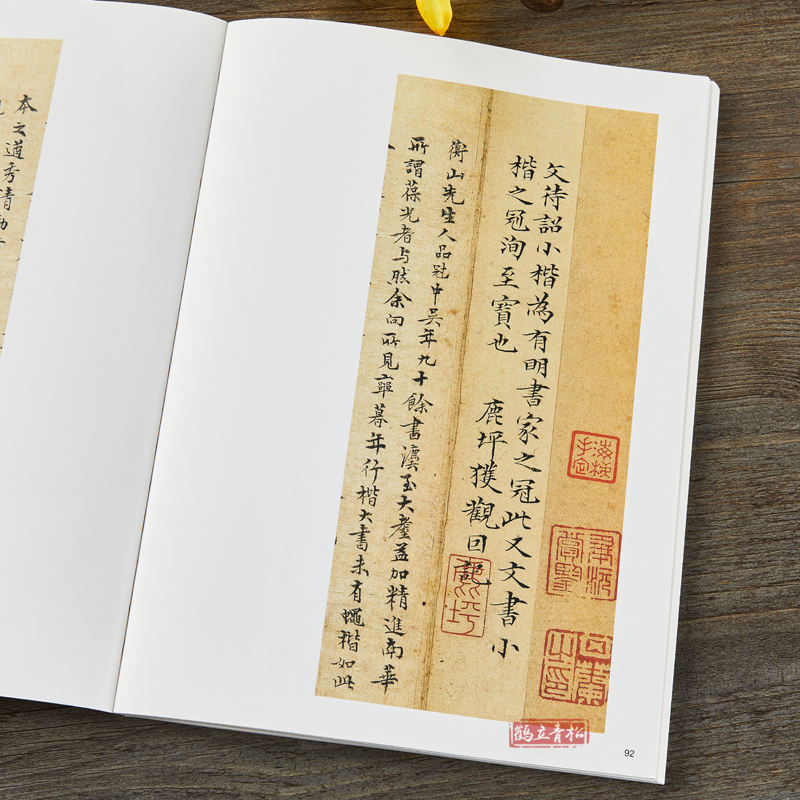 文待詔小楷為有明書家之冠此又文書小
楷之冠洵至寶也
鹿坪獲觀因記
衡山先生人品冠中吳年九十餘書法至大耋益加精進南華
所謂葆光者与然余向所見率暮年行楷大書未有蠅楷如此
本之道秀清
鹿坪
鹤立青松
92